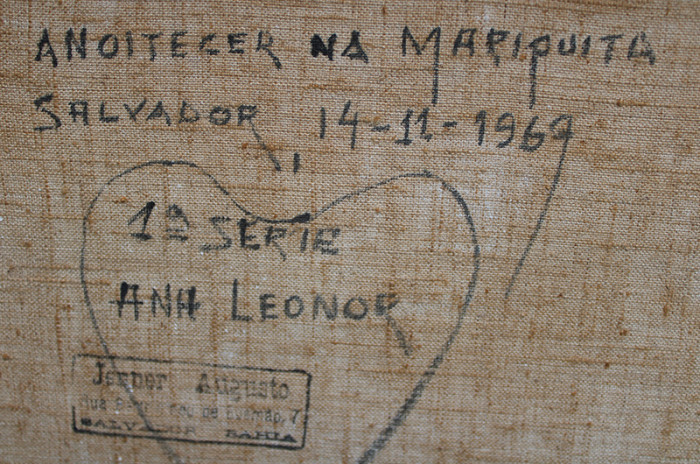 ANOITECER NA MARIQUITA
SALVADOR, 14-11-1969
1ª SERIE
ANA LEONOR
Augusto
SALVADOR BAHIA